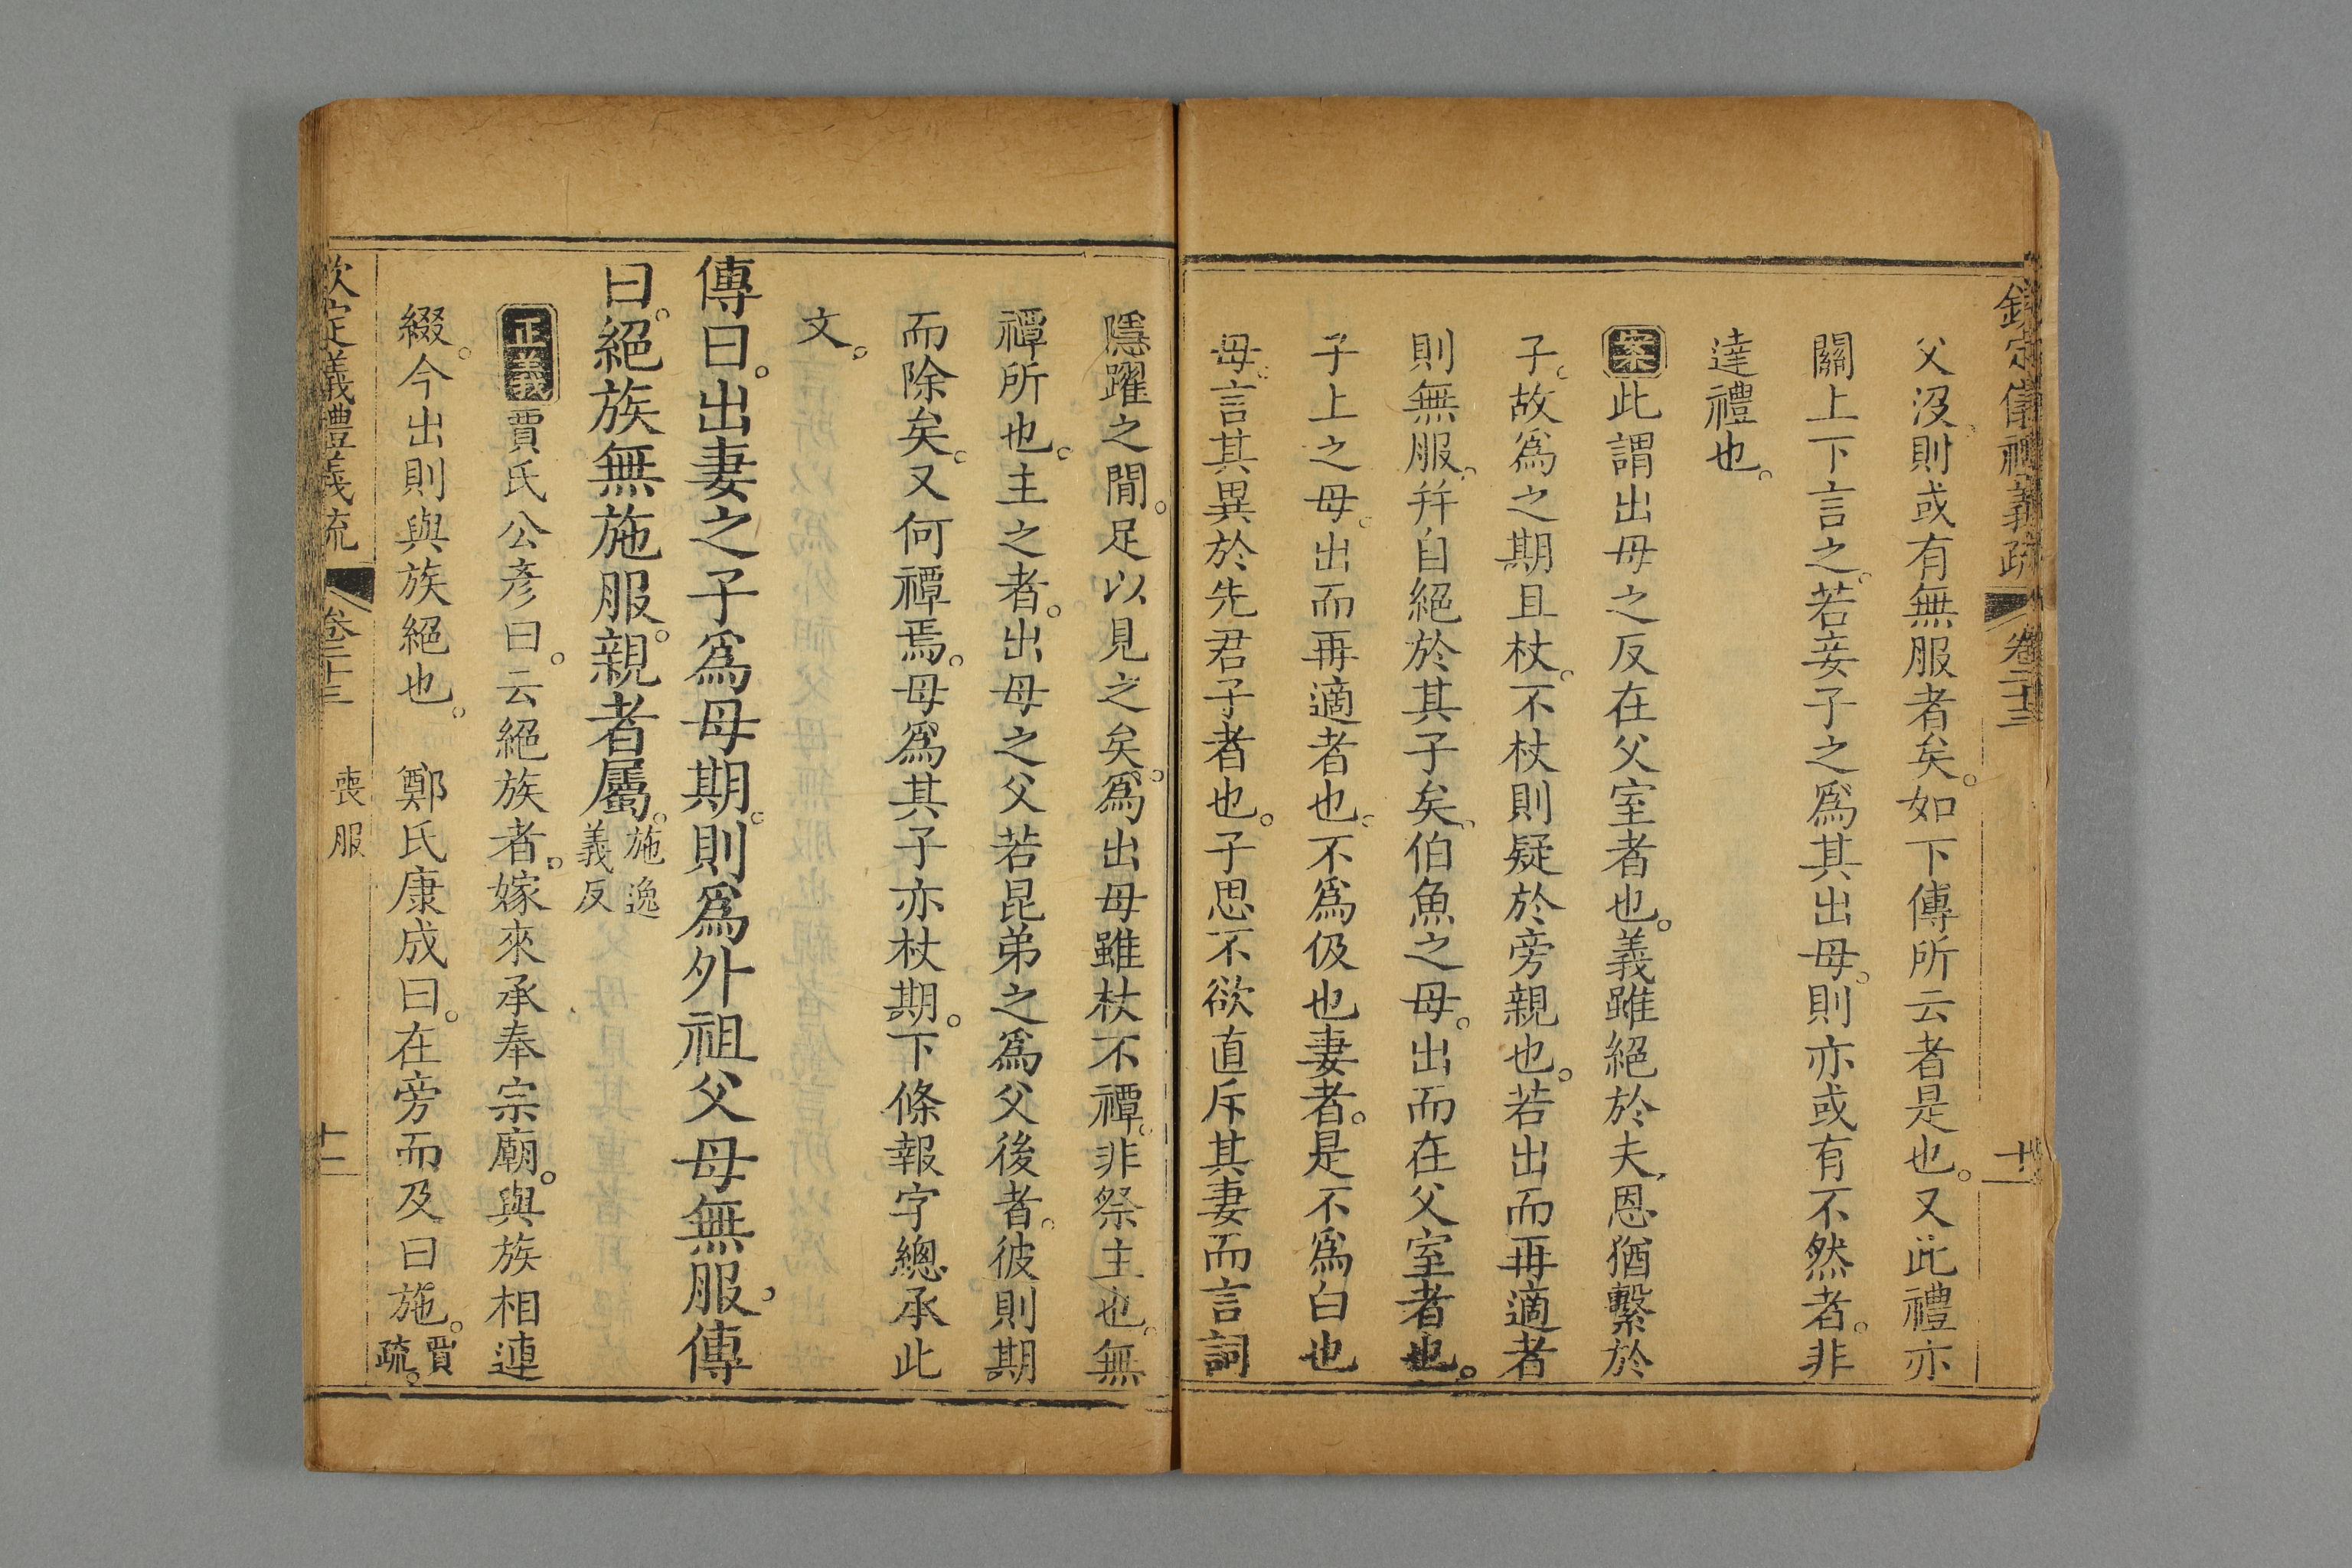 欽定儀禮義疏 卷二十三 十一
父沒則或有無服者矣。如下傳所云者是也。又此禮亦
關上下言之。若妾子之爲其出母。則亦或有不然者。非
達禮也。
案此謂出母之反在父室者也。義雖絕於夫、恩猶繫於
子。故爲之期且杖。不杖則疑於旁親也。若出而再適者
則無服。幷自絕於其子矣。伯魚之母。出而在父室者也。
子上之母。出而再適者也。不爲伋也妻者。是不爲白也
母。言其異於先君子者也。子思不欲直斥其妻而言詞
隱躍之閒。足以見之矣。爲出母雖杖不禫。非祭主也。無
禫所也。主之者。出母之父若昆弟之爲父後者。彼則期
而除矣。又何禫焉。母爲其子亦杖期。下條報字總承此
文。
傳曰。出妻之子爲母期。則爲外祖父母無服、傳
曰。絕族無施服。親者屬。施逸義反
正義賈氏公彥曰。云絕族者。嫁來承奉宗廟。與族相連
綴。今出則與族絕也。 鄭氏康成曰。在旁而及曰施。賈疏。
欽定儀禮義疏 卷二十三 喪服 十一